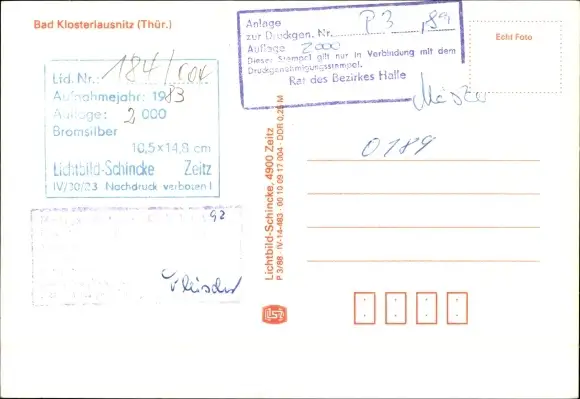 Bad Klosterlausnitz (Thür.)
Anlage
zur Druckgen. Nr. P 3 , 89
Auflage 2000
Dieser Stempel gilt nur in Verbindung mit dem
Druckgenehmigungsstempel.
Rat des Bezirkes Halle
Echt Foto
Lid. Nr.: 184/
Aufnahmejahr: 1983
Auflage: 2 000
Bromsilber
10,5×14,8 cm
Lichtbild-Schincke Zeitz
IV/20/23 Nachdruck verboten!
0189
92
Lichtbild-Schincke, 4900 Zeitz
P 3/88 · IV-14-483 · 00 10 09 17 004 · DDR 0,25 M